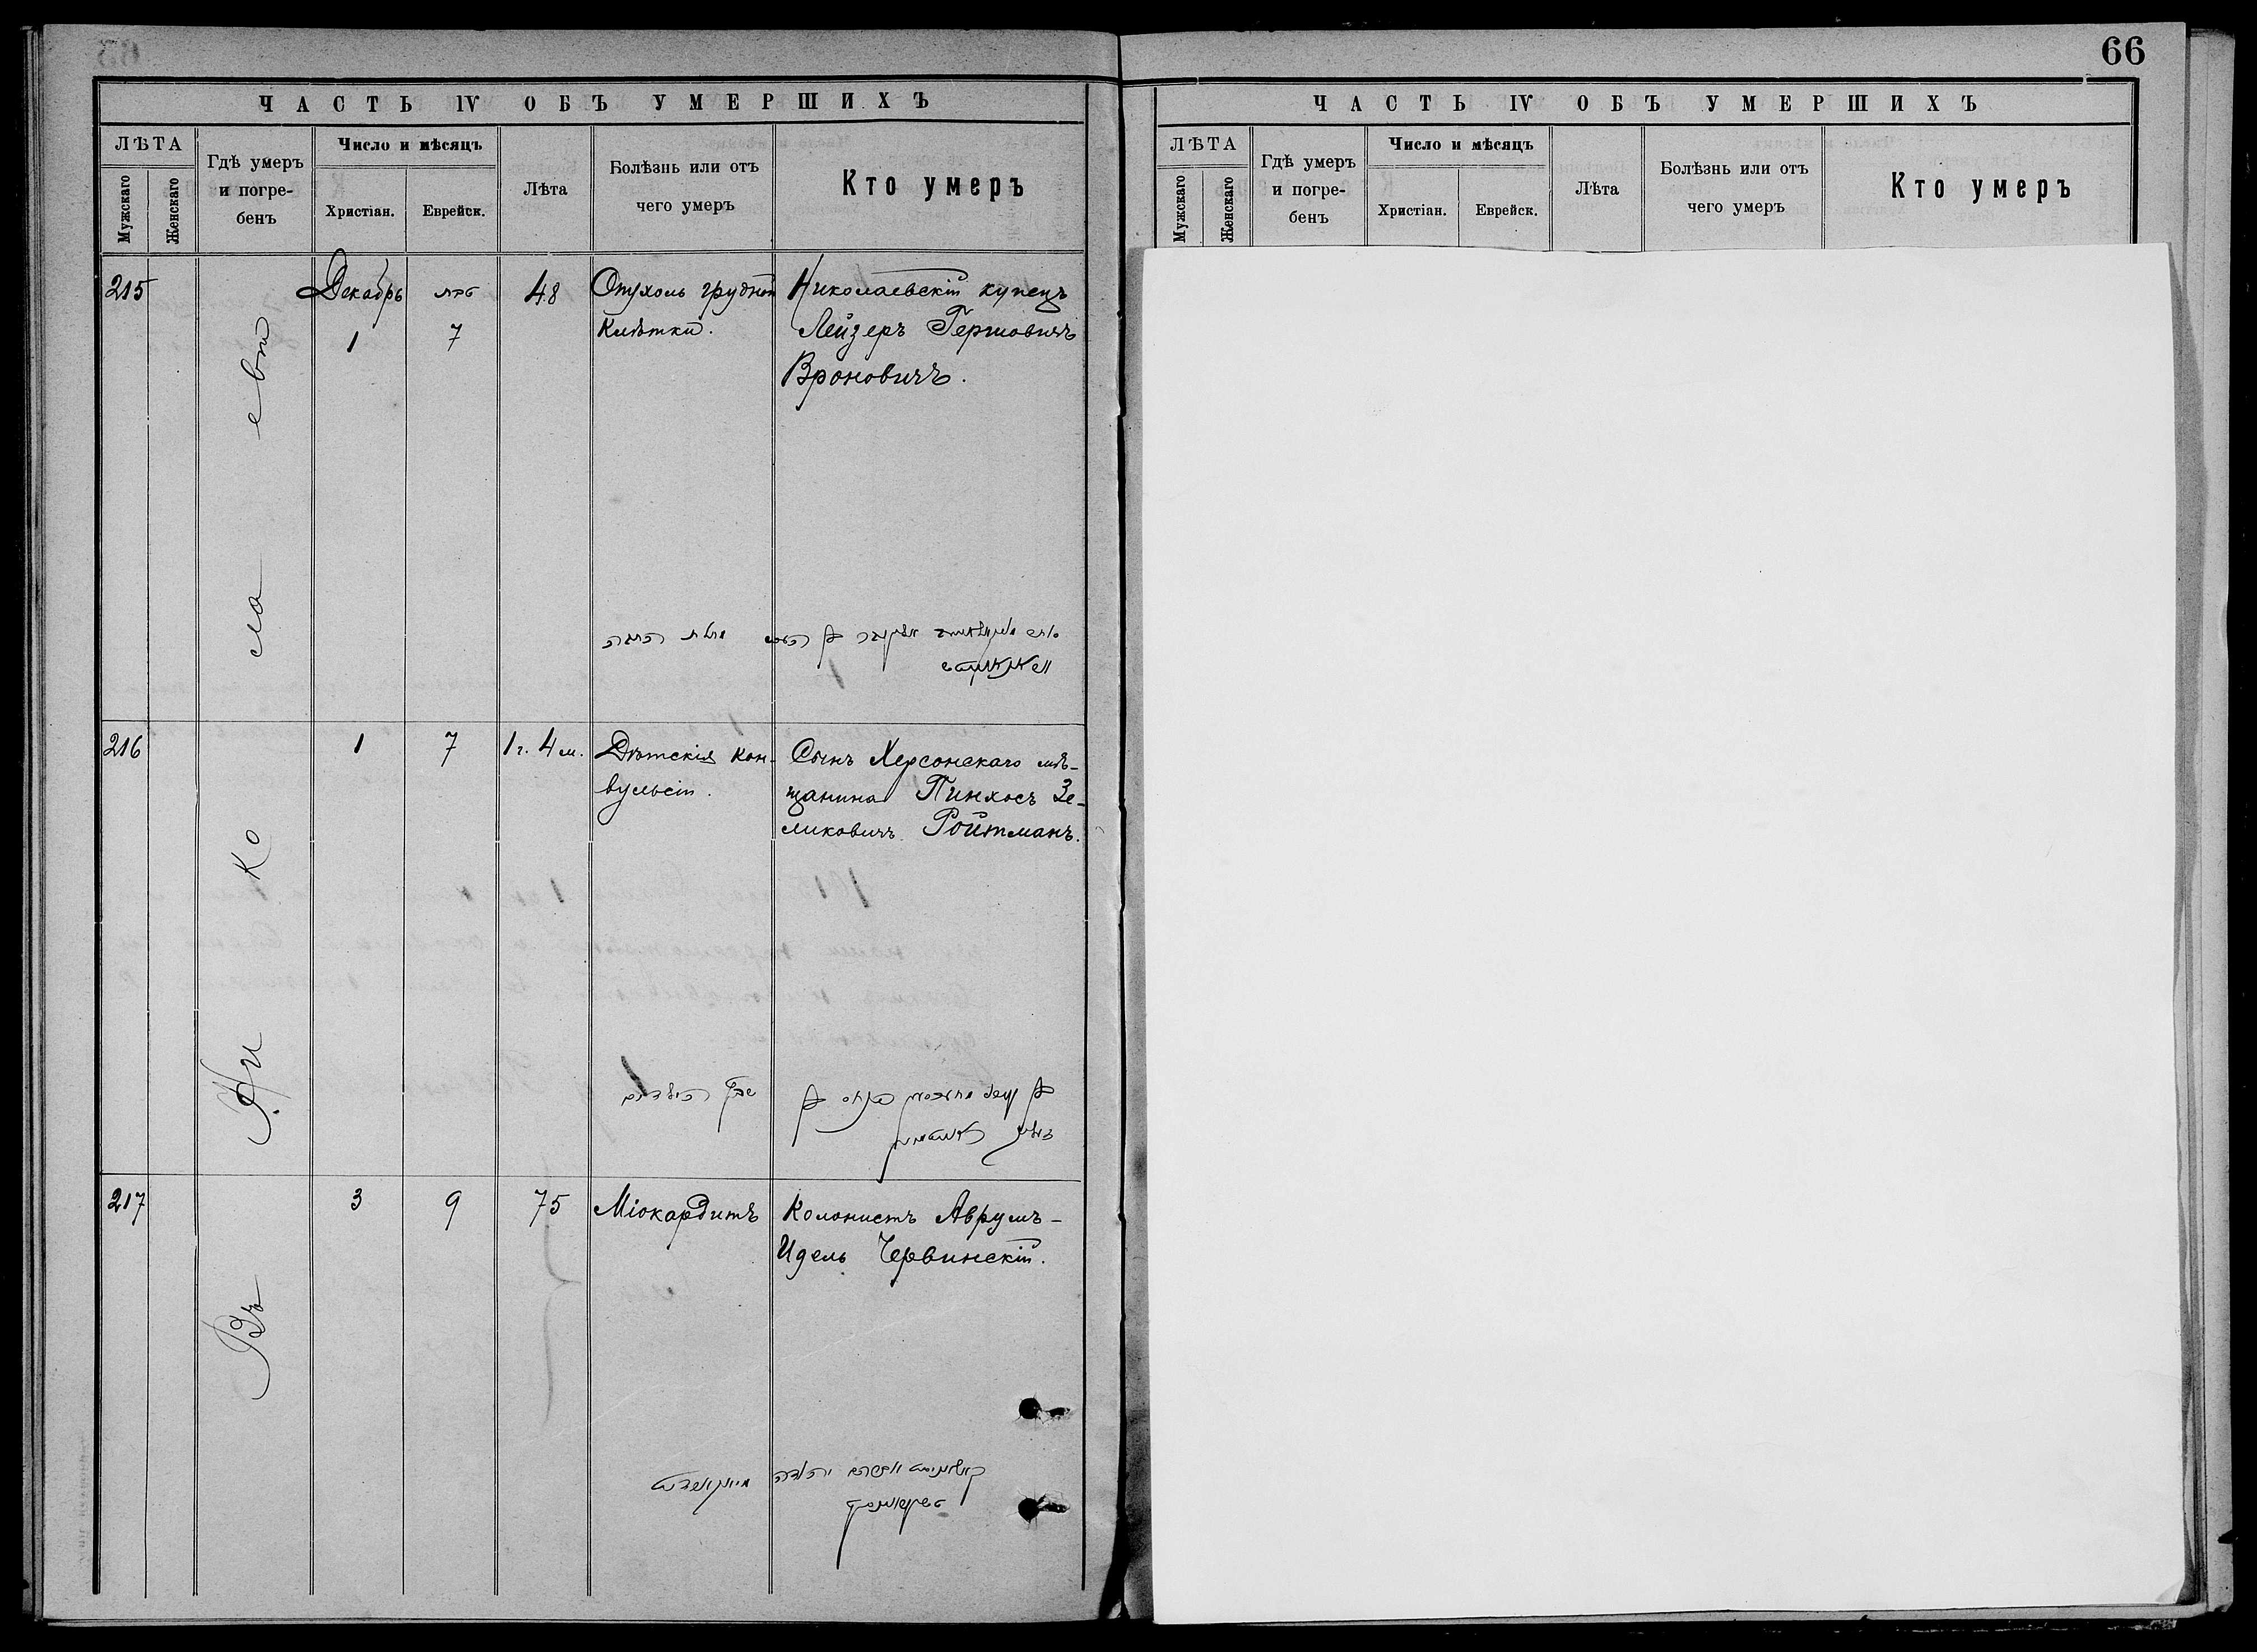 66
ЧАСТЬ IV ОБЪ УМЕРШИХЪ
ЛѢТА
Мужскаго
Женскаго
Гдѣ умеръ
и погре-
бенъ
Число и мѣсяцъ
Христіан.
Еврейск.
Лѣта
Болѣзнь или отъ
чего умеръ
Кто умеръ
Въ Николаевѣ
215
Декабрь
1
טבת
7
48
Опухоль грудной
Клѣтки.
Николаевскій купецъ
Лейзеръ Гершовичъ
Вроновичъ.
216
1
7
1 г. 4 м.
Дѣтскія кон-
вульсіи.
Сынъ Херсонскаго мѣ-
щанина Пинхосъ Зе-
ликовичъ Ройтманъ.
217
3
9
75
Міокардитъ
Колонистъ Аврумъ-
Идель Червинскій.
ЧАСТЬ IV ОБЪ УМЕРШИХЪ
ЛѢТА
Мужскаго
Женскаго
Гдѣ умеръ
и погре-
бенъ
Число и мѣсяцъ
Христіан.
Еврейск.
Лѣта
Болѣзнь или отъ
чего умеръ
Кто умеръ